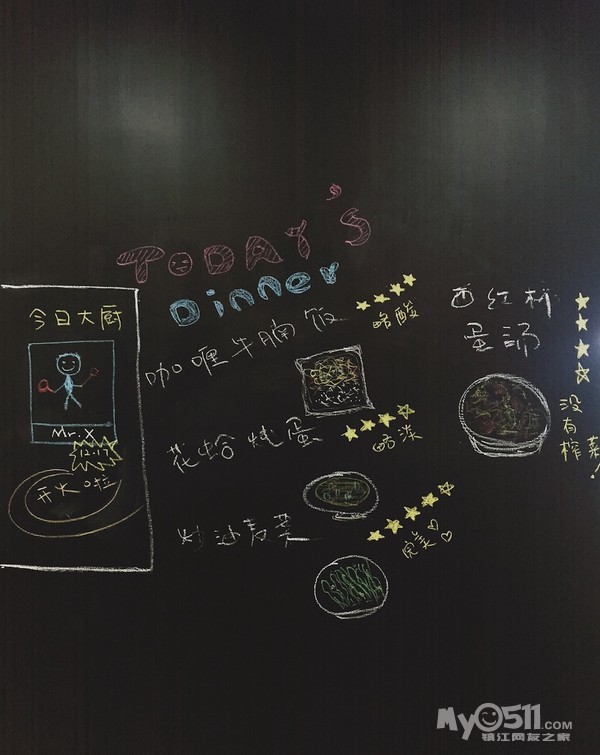 TODAY'S
Dinner
今日大厨
Mr. X
12.17
开火啦
咖喱牛腩饭
略酸
花蛤炖蛋
略淡
炒油麦菜
完美
西红柿
蛋汤
没有榨菜!
MyO511.com
镇江网友之家